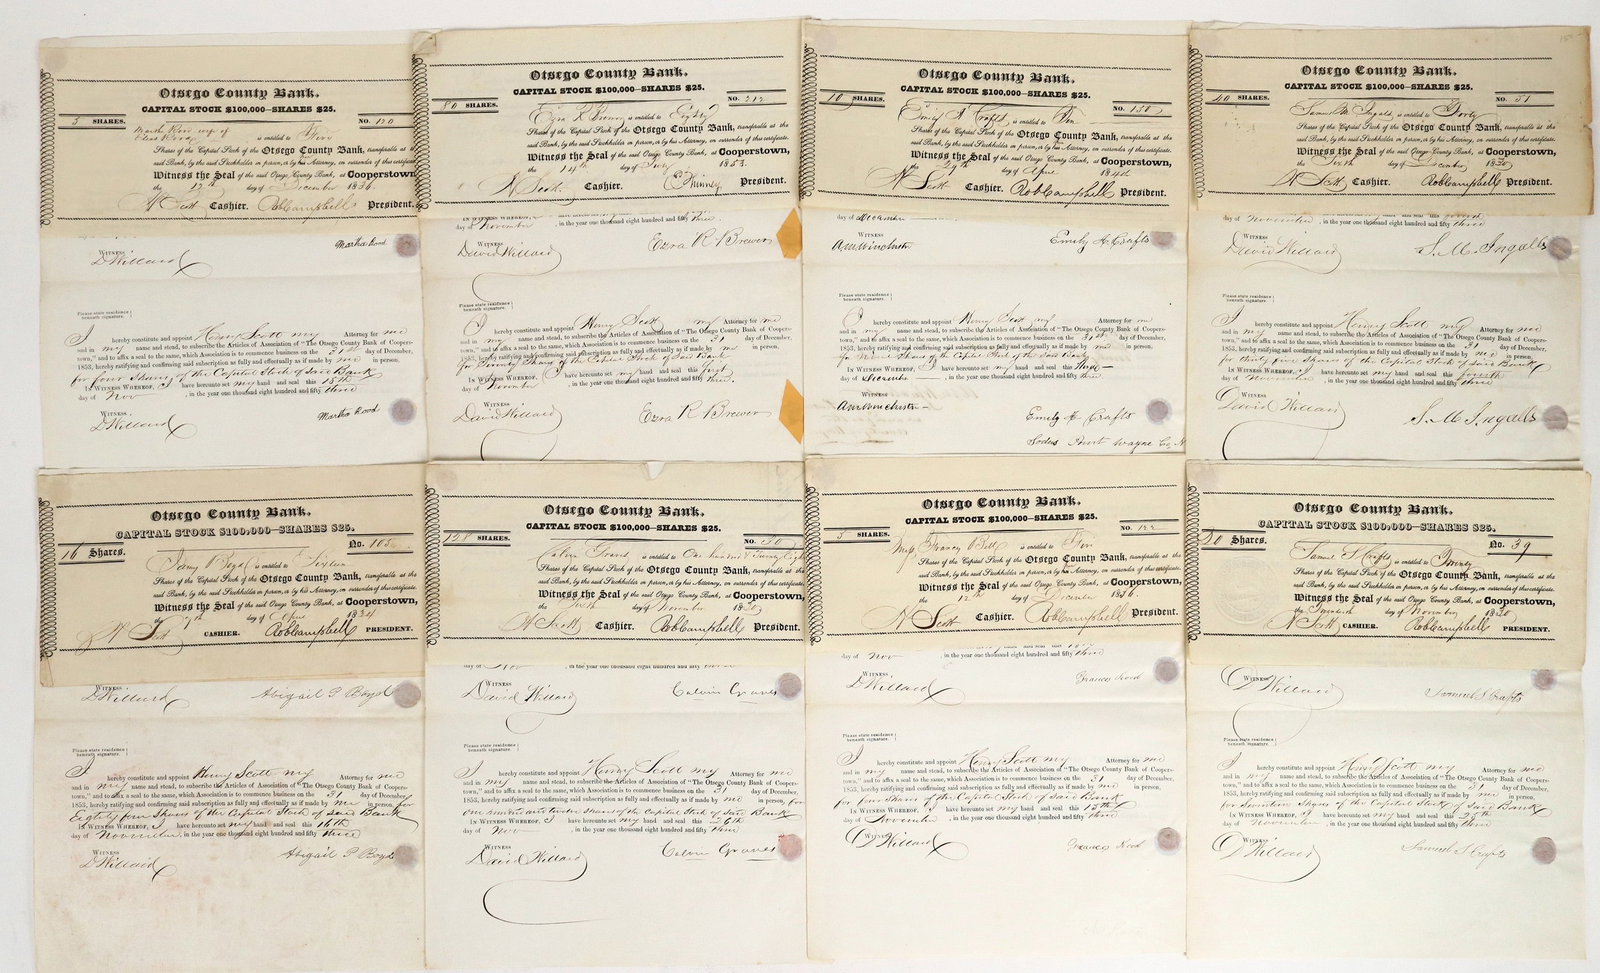 Otsego County Bank.
CAPITAL STOCK $100,000—SHARES $25.
5 SHARES. No. 120
Martha Rood wife of
is entitled to Five
Shares of the Capital Stock of the Otsego County Bank, transferable at the
said Bank, by the said Stockholder in person, or by his Attorney, on surrender of this certificate.
Witness the Seal of the said Otsego County Bank, at Cooperstown,
the 12th day of December 1836.
N Scott Cashier. Rob Campbell President.
WITNESS Martha Rood
D Willard
Please state residence
beneath signature.
I hereby constitute and appoint Henry Scott my Attorney for me
and in my name and stead, to subscribe the Articles of Association of "The Otsego County Bank of Coopers-
town," and to affix a seal to the same, which Association is to commence business on the 31 day of December,
1853, hereby ratifying and confirming said subscription as fully and effectually as if made by me in person,
for four Shares of the Capital Stock of said Bank
In Witness Whereof, I have hereunto set my hand and seal this 15th
day of Nov , in the year one thousand eight hundred and fifty three
WITNESS
D Willard Martha Rood
Otsego County Bank.
CAPITAL STOCK $100,000—SHARES $25.
80 SHARES. NO. 212
Ezra R Brewer is entitled to Eighty
Shares of the Capital Stock of the Otsego County Bank, transferable at the
said Bank, by the said Stockholder in person, or by his Attorney, on surrender of this certificate.
Witness the Seal of the said Otsego County Bank, at Cooperstown,
the 14th day of July 1853.
N Scott Cashier. E Phinney President.
In Witness Whereof, have hereunto set hand and seal this
day of November , in the year one thousand eight hundred and fifty three.
WITNESS
David Willard Ezra R Brewer
Please state residence
beneath signature.
I hereby constitute and appoint Henry Scott my Attorney for me
and in my name and stead, to subscribe the Articles of Association of "The Otsego County Bank of Coopers-
town," and to affix a seal to the same, which Association is to commence business on the 31 day of December,
1853, hereby ratifying and confirming said subscription as fully and effectually as if made by me in person,
for Seventy Shares of the Capital Stock of said Bank
In Witness Whereof, I have hereunto set my hand and seal this first
day of November , in the year one thousand eight hundred and fifty three.
WITNESS
David Willard Ezra R Brewer
Otsego County Bank.
CAPITAL STOCK $100,000—SHARES $25.
10 SHARES. NO. 150
Emily A Crafts is entitled to Ten
Shares of the Capital Stock of the Otsego County Bank, transferable at the
said Bank, by the said Stockholder in person, or by his Attorney, on surrender of this certificate.
Witness the Seal of the said Otsego County Bank, at Cooperstown,
the 29th day of April 184
N Scott Cashier. Rob Campbell President.
day of December , in the year one thousand eight hundred and fifty three
WITNESS
A M Winchester Emily A. Crafts
Please state residence
beneath signature.
I hereby constitute and appoint Henry Scott my Attorney for me
and in my name and stead, to subscribe the Articles of Association of "The Otsego County Bank of Coopers-
town," and to affix a seal to the same, which Association is to commence business on the 31st day of December,
1853, hereby ratifying and confirming said subscription as fully and effectually as if made by me in person,
for nine Shares of the Capital Stock of the said Bank
In Witness Whereof, I have hereunto set my hand and seal this three
day of December , in the year one thousand eight hundred and fifty three
WITNESS
A M Winchester Emily A. Crafts
Sodus Point Wayne Co N
Otsego County Bank.
CAPITAL STOCK $100,000—SHARES $25.
40 SHARES. NO. 51
Samuel M Ingalls, is entitled to Forty
Shares of the Capital Stock of the Otsego County Bank, transferable at the
said Bank, by the said Stockholder in person, or by his Attorney, on surrender of this certificate.
Witness the Seal of the said Otsego County Bank, at Cooperstown,
the Sixth day of December 1830
N Scott Cashier. Rob Campbell President.
day of November , in the year one thousand eight hundred and fifty three
WITNESS
David Willard S. M. Ingalls
Please state residence
beneath signature.
I hereby constitute and appoint Henry Scott my Attorney for me
and in my name and stead, to subscribe the Articles of Association of "The Otsego County Bank of Coopers-
town," and to affix a seal to the same, which Association is to commence business on the 31 day of December,
1853, hereby ratifying and confirming said subscription as fully and effectually as if made by me in person,
for thirty five Shares of the Capital Stock of said Bank
In Witness Whereof, I have hereunto set my hand and seal this fourth
day of November , in the year one thousand eight hundred and fifty three
WITNESS
David Willard S. M. Ingalls
Otsego County Bank.
CAPITAL STOCK $100,000—SHARES $25.
16 Shares. No. 105
Boyd is entitled to Sixteen
Shares of the Capital Stock of the Otsego County Bank, transferable at the
said Bank, by the said Stockholder in person, or by his Attorney, on surrender of this certificate.
Witness the Seal of the said Otsego County Bank, at Cooperstown,
the 7th day of April 1834
N Scott CASHIER. Rob Campbell PRESIDENT.
WITNESS
D Willard Abigail P Boyd
Please state residence
beneath signature.
I hereby constitute and appoint Henry Scott my Attorney for me
and in my name and stead, to subscribe the Articles of Association of "The Otsego County Bank of Coopers-
town," and to affix a seal to the same, which Association is to commence business on the 31 day of December,
1853, hereby ratifying and confirming said subscription as fully and effectually as if made by me in person, for
Eighty four Shares of the Capital Stock of said Bank
In Witness Whereof, I have hereunto set my hand and seal this 16th
day of November , in the year one thousand eight hundred and fifty three
WITNESS
D Willard Abigail P Boyd
Otsego County Bank.
CAPITAL STOCK $100,000—SHARES $25.
128 SHARES. NO. 30
Calvin Graves is entitled to One hundred & Twenty Eight
Shares of the Capital Stock of the Otsego County Bank, transferable at the
said Bank, by the said Stockholder in person, or by his Attorney, on surrender of this certificate.
Witness the Seal of the said Otsego County Bank, at Cooperstown,
the Sixth day of November 1830
N Scott Cashier. Rob Campbell President.
day of Nov , in the year one thousand eight hundred and fifty three
WITNESS
David Willard Calvin Graves
Please state residence
beneath signature.
I hereby constitute and appoint Henry Scott my Attorney for me
and in my name and stead, to subscribe the Articles of Association of "The Otsego County Bank of Coopers-
town," and to affix a seal to the same, which Association is to commence business on the 31 day of December,
1853, hereby ratifying and confirming said subscription as fully and effectually as if made by me in person, for
one hundred twelve Shares of the Capital Stock of said Bank
In Witness Whereof, I have hereunto set my hand and seal this 26th
day of Nov , in the year one thousand eight hundred and fifty three
WITNESS
David Willard Calvin Graves
Otsego County Bank.
CAPITAL STOCK $100,000—SHARES $25.
5 SHARES. NO. 122
Miss Francis Bell is entitled to Five
Shares of the Capital Stock of the Otsego County Bank, transferable at the
said Bank, by the said Stockholder in person, or by his Attorney, on surrender of this certificate.
Witness the Seal of the said Otsego County Bank, at Cooperstown,
the 12th day of December 1836.
N Scott Cashier. Rob Campbell President.
day of Nov , in the year one thousand eight hundred and fifty three
WITNESS
D Willard Frances Rood
Please state residence
beneath signature.
I hereby constitute and appoint Henry Scott my Attorney for me
and in my name and stead, to subscribe the Articles of Association of "The Otsego County Bank of Coopers-
town," and to affix a seal to the same, which Association is to commence business on the 31 day of December,
1853, hereby ratifying and confirming said subscription as fully and effectually as if made by me in person,
for four Shares of the Capital Stock of said Bank
In Witness Whereof, I have hereunto set my hand and seal this 15th
day of November , in the year one thousand eight hundred and fifty three
WITNESS
D Willard Frances Rood
Otsego County Bank.
CAPITAL STOCK $100,000—SHARES $25.
20 Shares. No. 39
Samuel S Crafts, is entitled to Twenty
Shares of the Capital Stock of the Otsego County Bank, transferable at the
said Bank, by the said Stockholder in person, or by his Attorney, on surrender of this certificate.
Witness the Seal of the said Otsego County Bank, at Cooperstown,
the Twentieth day of November 1830
N Scott CASHIER. Rob Campbell PRESIDENT.
WITNESS
D Willard Samuel S Crafts
Please state residence
beneath signature.
I hereby constitute and appoint Henry Scott my Attorney for me
and in my name and stead, to subscribe the Articles of Association of "The Otsego County Bank of Coopers-
town," and to affix a seal to the same, which Association is to commence business on the 31 day of December,
1853, hereby ratifying and confirming said subscription as fully and effectually as if made by me in person,
for Seventeen Shares of the Capital Stock of said Bank
In Witness Whereof, I have hereunto set my hand and seal this 25th
day of November , in the year one thousand eight hundred and fifty three
WITNESS
D Willard Samuel S Crafts